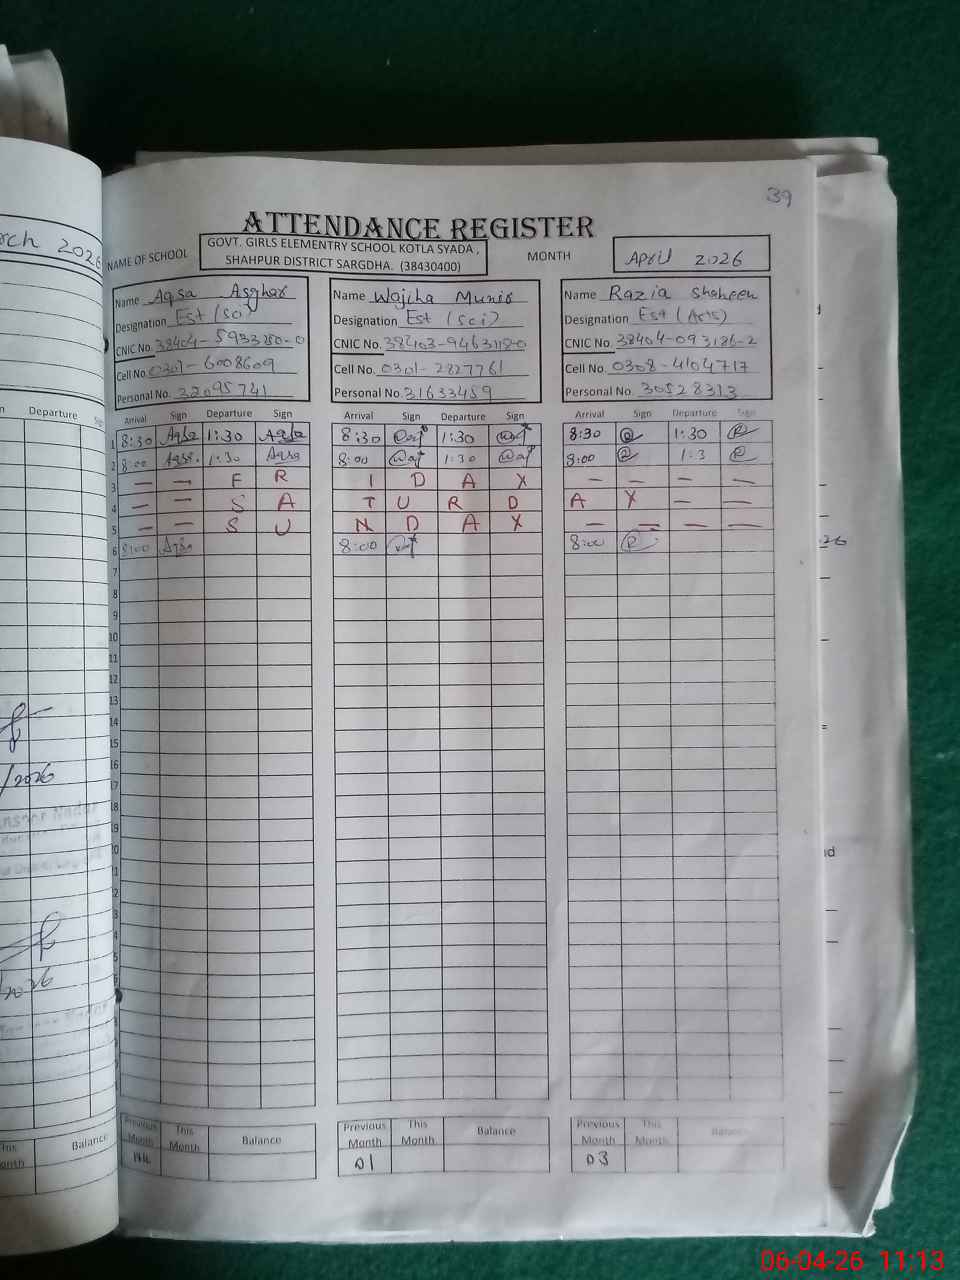 39
ATTENDANCE REGISTER
NAME OF SCHOOL GOVT. GIRLS ELEMENTRY SCHOOL KOTLA SYADA, SHAHPUR DISTRICT SARGDHA. (38430400) MONTH April 2026
Name Aqsa Asghar
Designation Est (Sci)
CNIC No.
Cell No. 0301-6008609
Personal No. 32095741
Name Wajiha Munir
Designation Est (Sci)
CNIC No.
Cell No. 0301-2827761
Personal No. 31633459
Name Razia Shaheen
Designation Est (Arts)
CNIC No. 38404-093186-2
Cell No. 0308-4104717
Personal No. 30528313
Arrival Sign Departure Sign Arrival Sign Departure Sign Arrival Sign Departure Sign
1 8:30 Aqsa 1:30 Aqsa 8:30 1:30 8:30 1:30
2 8:00 Aqsa 1:30 Aqsa 8:00 1:30 8:00 1:3
3 — — F R I D A Y — — — —
4 — — S A T U R D A Y — —
5 — — S U N D A Y — — — —
6 8:00 Aqsa 8:00 8:00
7
8
9
10
11
12
13
14
15
16
17
18
Previous Month This Month Balance Previous Month This Month Balance Previous Month This Month Balance
01 03
rch 2026
Departure
/2026
/2026
Balance
06-04-26 11:13